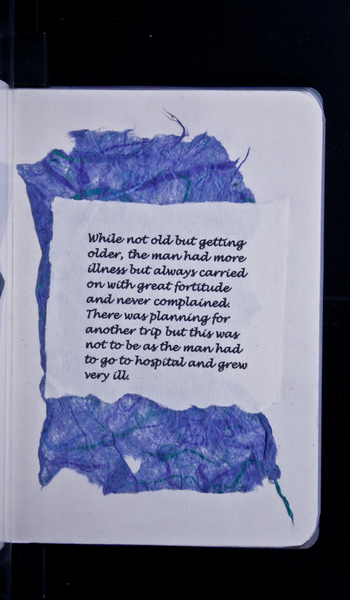 While not old but getting
older, the man had more
illness but always carried
on with great fortitude
and never complained.
There was planning for
another trip but this was
not to be as the man had
to go to hospital and grew
very ill.